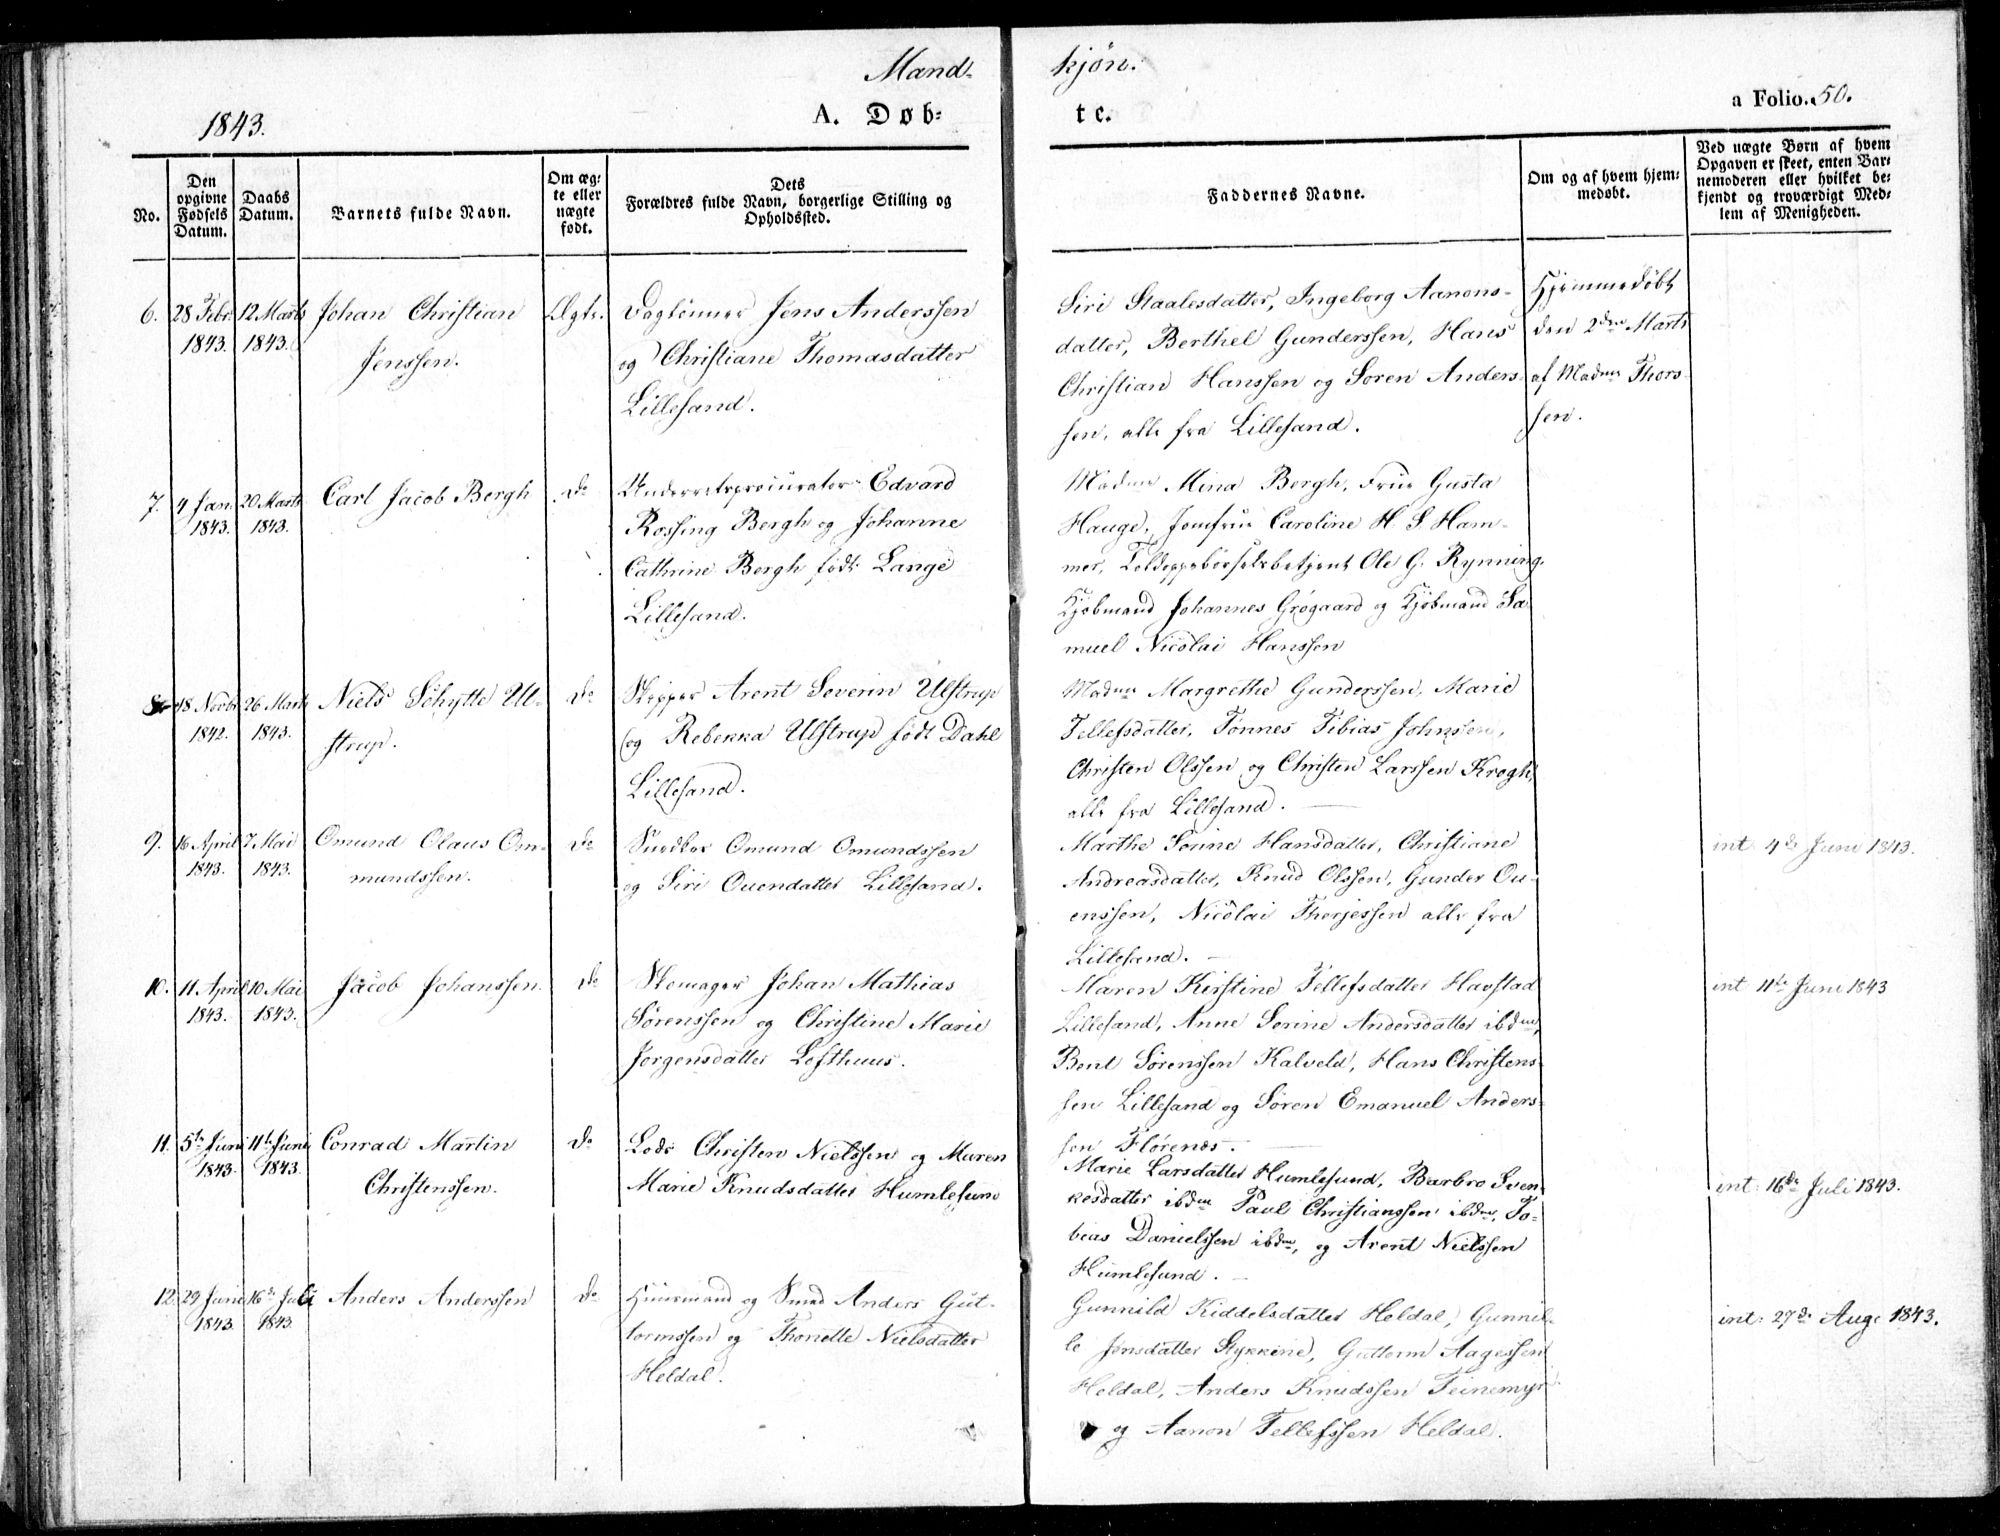 Mand-
kjøn.
1843.
A. Døb-
te.
a Folio. 50.
No.
Den opgivne Fødsels Datum.
Daabs Datum.
Barnets fulde Navn.
Om ægte eller uægte født.
Dets Forældres fulde Navn, borgerlige Stilling og Opholdssted.
Faddernes Navne.
Om og af hvem hjemmedøbt.
Ved uægte Børn af hvem Opgaven er skeet, enten Barnemoderen eller hvilket bekjendt og troværdigt Medlem af Menigheden.
6. 28 Febr. 1843. 12 Marts 1843.
Johan Christian
Jenssen.
Ægte.
Dagлønner Jens Anderssen
og Christiane Thomasdatter
Lillesand.
Siri Staalesdatter, Ingeborg Aanons-
datter, Berthel Gunderssen, Hans
Christian Hanssen og Søren Anders-
sen, alle fra Lillesand.
Hjemmedøbt
den 2den Marts
af Madme Thors-
sen.
7. 4 Jan 1843. 20 Marts 1843.
Carl Jacob Bergh
do
Underretsprocurator Edvard
Rossing Bergh og Johanne
Cathrine Bergh født Lange
Lillesand.
Madme Mina Bergh, Frue Gusta
Hauge, Jomfrue Caroline H S Ham-
mer, Toldoppebørselsbetjent Ole G. Rynning,
Kjøbmand Johannes Grøgaard og Kjøbmand Sa-
muel Nicolai Hanssen
8. 18 Novbr 1842. 26 Marts 1843.
Niels Schytte Ul-
strup.
do
Skipper Arent Severin Ulstrup
og Rebekka Ulstrup født Dahl
Lillesand.
Madme Margrethe Gunderssen, Marie
Tellefsdatter, Tønnes Tibias Johnsen,
Christen Olssen og Christen Larssen Krogh,
alle fra Lillesand.
9. 16 April 1843. 7 Mai 1843.
Omund Olaus Om-
mundssen.
do
Snedker Omund Omundssen
og Siri Ouendatter Lillesand.
Marthe Sorine Hansdatter, Christiane
Andreasdatter, Knud Olssen, Gunder Ou-
enssen, Nicolai Thorjessen alle fra
Lillesand.
int. 4de Juni 1843.
10. 11 April 1843. 10 Mai 1843.
Jacob Johanssen.
do
Skomager Johan Mathias
Sørenssen og Christine Marie
Jørgensdatter Lofthuus.
Maren Kirstine Tellefsdatter Havstad
Lillesand, Anne Sorine Andersdatter ibdm,
Bent Sørenssen Kalveld, Hans Christens-
sen Lillesand og Søren Emanuel Anders-
sen Flørenes.
int 11te Juni 1843
11. 5te Juni 1843. 11te Juni 1843.
Conrad Martin
Christenssen.
do
Lods Christen Nielssen og Maren
Marie Knudsdatter Humlesund
Marie Larsdatter Humlesund, Barbro Sven-
kesdatter ibdm Paul Christianssen ibdm, To-
bias Danielssen ibdm, og Arent Nielssen
Humlesund.
int: 16de Juli 1843.
12. 29 Juni 1843. 16de Juli 1843.
Anders Anderssen
do
Huusmand og Smed Anders Gut-
tormssen og Thonette Nielsdatter
Heldal.
Gunnild Kiddelsdatter Heldal, Gunnil-
le Jensdatter Stykkene, Guttorm Aagessen
Heldal, Anders Knudssen Teinemyr
og Aanon Tellefssen Heldal.
int: 27de Aug: 1843.